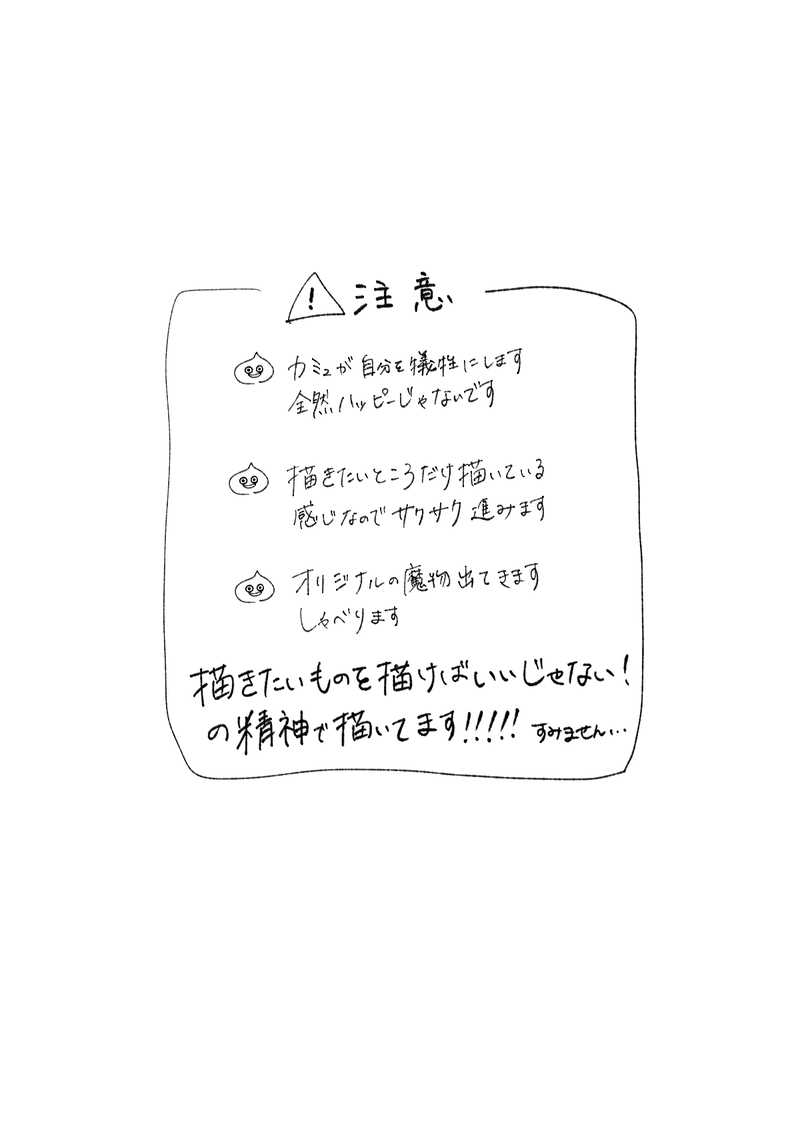 ! 注意
カミュが自分を犠牲にします
全然ハッピーじゃないです
描きたいところだけ描いている
感じなのでサクサク進みます
オリジナルの魔物出てきます
しゃべります
描きたいものを描けばいいじゃない!
の精神で描いてます!!!!! すみません…